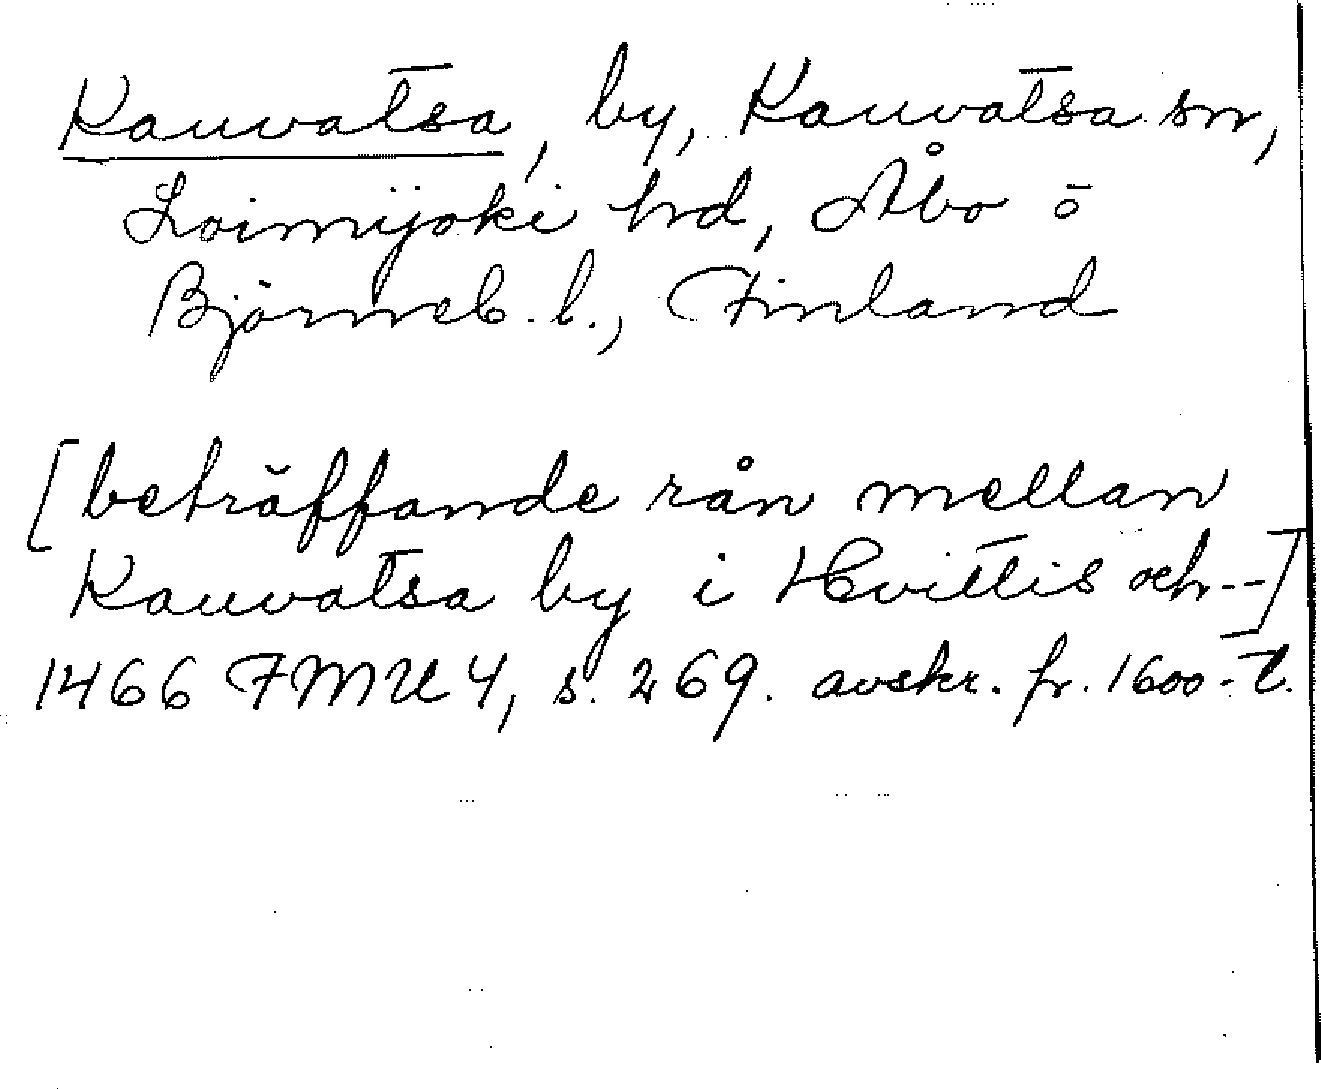 Kauvatsa, by, Kauvatsa sn,
Loimijoki hd, Åbo o
Björneb. l., Finland
[beträffande rån mellan
Kauvatsa by i Hvittis och--]
1466 FMU 4, s. 269. avskr. fr. 1600-t.